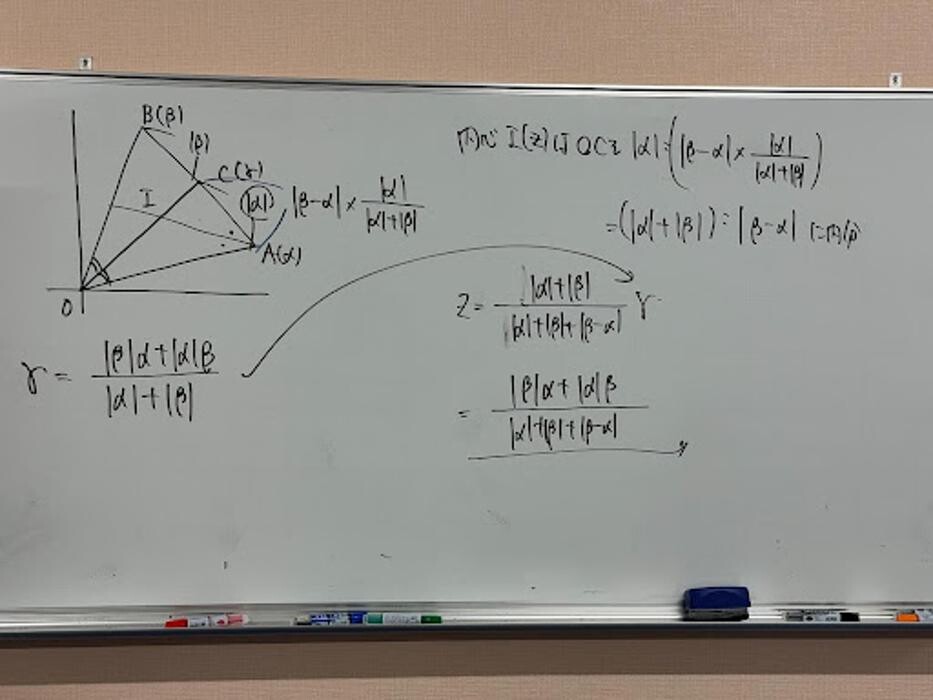 B(β)
|β|
C(γ)
I
|α|
|β-α|×|α|/(|α|+|β|)
A(α)
O
γ = (|β|α+|α|β)/(|α|+|β|)
内心 I(z)は OCを |α|:(|β-α|×|α|/(|α|+|β|))
=(|α|+|β|):|β-α| に内分
z = (|α|+|β|)/(|α|+|β|+|β-α|) γ
= (|β|α+|α|β)/(|α|+|β|+|β-α|)